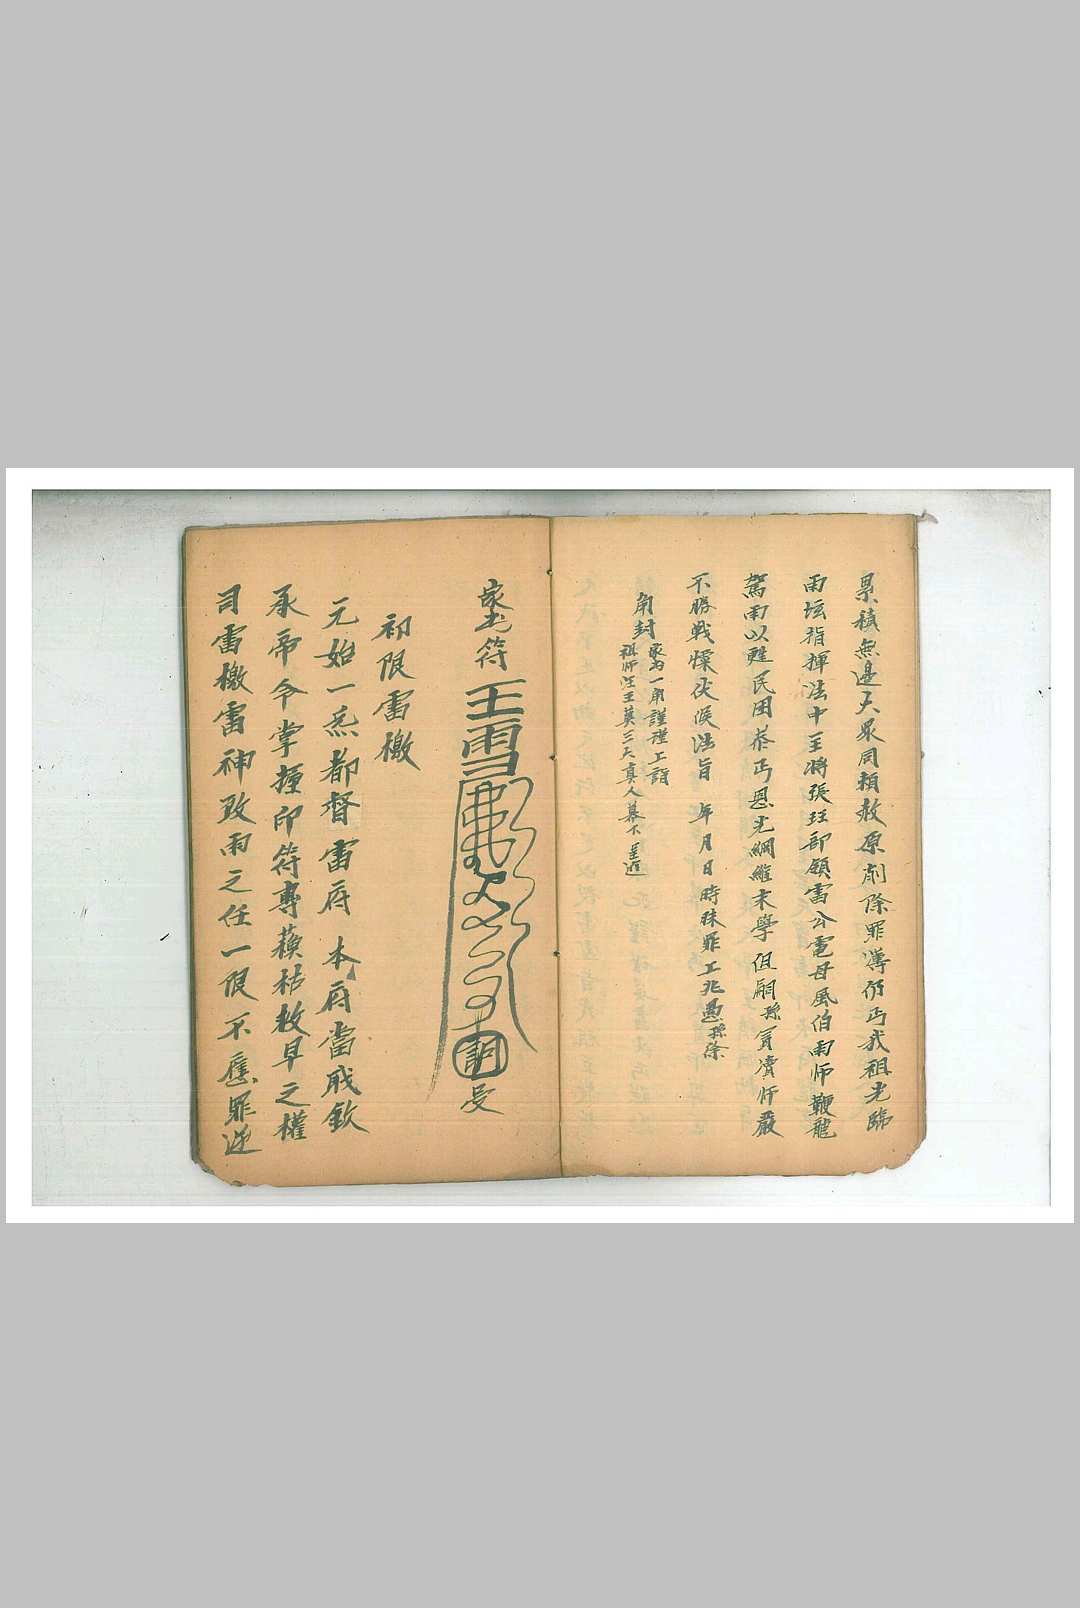 累積無邊天眾同賴赦原削除罪簿仍丐我祖光臨
雨壇指揮法中主將張玨部領雷公電母風伯雨师鞭龍
駕雨以甦民困恭丐恩光綱維末學但嗣孫冒瀆师嚴
不勝戰慄伏候法旨 年月日時 罪 工兆愚孫徐
角封
家西一角謹謹工詣
祖师汪王莫三天真人幕下 進
家 符
初限雷檄
元始一炁都督雷府 本府當職欽
承帝令掌握印符專蘇枯救旱之權
司雷檄雷神致雨之任一限不應罪逆